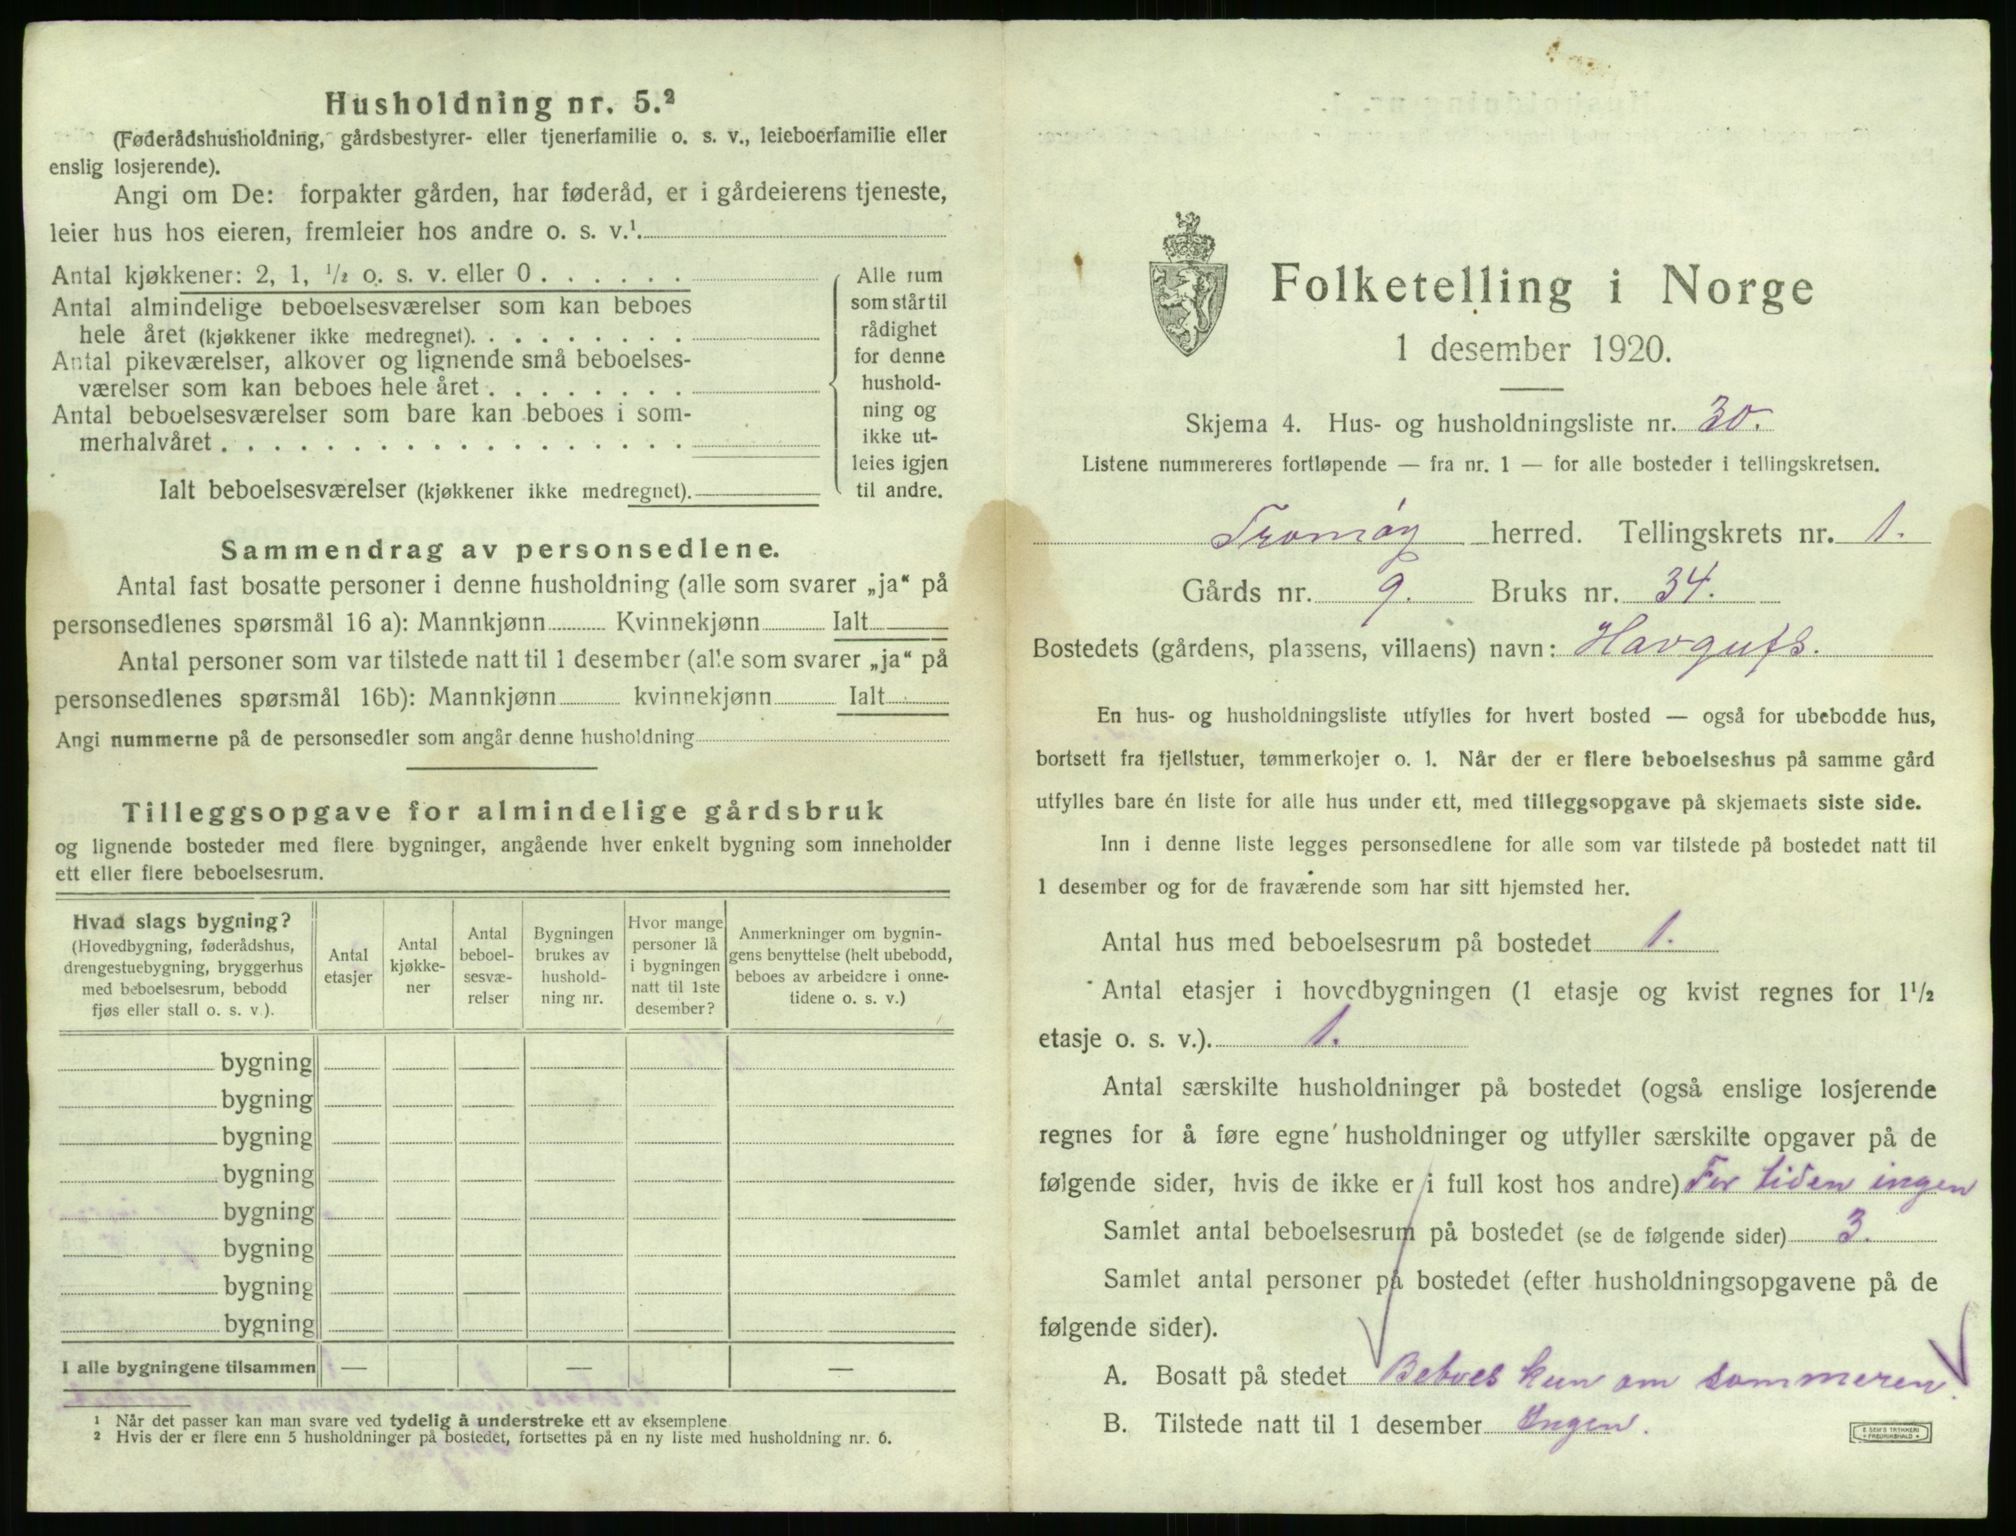 Husholdning nr. 5.²
(Føderådshusholdning, gårdsbestyrer- eller tjenerfamilie o. s. v., leieboerfamilie eller
enslig losjerende).
Angi om De: forpakter gården, har føderåd, er i gårdeierens tjeneste,
leier hus hos eieren, fremleier hos andre o. s. v.¹
Antal kjøkkener: 2, 1, ½ o. s. v. eller 0 . . . . . .
Antal almindelige beboelsesværelser som kan beboes
hele året (kjøkkener ikke medregnet). . . . . . . . .
Antal pikeværelser, alkover og lignende små beboelses-
værelser som kan beboes hele året . . . . . . . .
Antal beboelsesværelser som bare kan beboes i som-
merhalvåret . . . . . . . . . . . . . . . . . .
Ialt beboelsesværelser (kjøkkener ikke medregnet).
Alle rum
som står til
rådighet
for denne
hushold-
ning og
ikke ut-
leies igjen
til andre.
Sammendrag av personsedlene.
Antal fast bosatte personer i denne husholdning (alle som svarer „ja“ på
personsedlenes spørsmål 16 a): Mannkjønn Kvinnekjønn Ialt
Antal personer som var tilstede natt til 1 desember (alle som svarer „ja“ på
personsedlenes spørsmål 16b): Mannkjønn kvinnekjønn Ialt
Angi nummerne på de personsedler som angår denne husholdning
Tilleggsopgave for almindelige gårdsbruk
og lignende bosteder med flere bygninger, angående hver enkelt bygning som inneholder
ett eller flere beboelsesrum.
Hvad slags bygning?
(Hovedbygning, føderådshus,
drengestuebygning, bryggerhus
med beboelsesrum, bebodd
fjøs eller stall o. s. v.).
Antal
etasjer
Antal
kjøkke-
ner
Antal
beboel-
sesvæ-
relser
Bygningen
brukes av
hushold-
ning nr.
Hvor mange
personer lå
i bygningen
natt til 1ste
desember?
Anmerkninger om bygnin-
gens benyttelse (helt ubebodd,
beboes av arbeidere i onne-
tidene o. s. v.)
bygning
bygning
bygning
bygning
bygning
bygning
bygning
bygning
I alle bygningene tilsammen — — —
¹ Når det passer kan man svare ved tydelig å understreke ett av eksemplene
² Hvis der er flere enn 5 husholdninger på bostedet, fortsettes på en ny liste med husholdning nr. 6.
Folketelling i Norge
1 desember 1920.
Skjema 4. Hus- og husholdningsliste nr. 30.
Listene nummereres fortløpende — fra nr. 1 — for alle bosteder i tellingskretsen.
Tromøy herred. Tellingskrets nr. 1.
Gårds nr. 9. Bruks nr. 34.
Bostedets (gårdens, plassens, villaens) navn: Havgufs.
En hus- og husholdningsliste utfylles for hvert bosted — også for ubebodde hus,
bortsett fra fjellstuer, tømmerkojer o. l. Når der er flere beboelseshus på samme gård
utfylles bare én liste for alle hus under ett, med tilleggsopgave på skjemaets siste side.
Inn i denne liste legges personsedlene for alle som var tilstede på bostedet natt til
1 desember og for de fraværende som har sitt hjemsted her.
Antal hus med beboelsesrum på bostedet 1.
Antal etasjer i hovedbygningen (1 etasje og kvist regnes for 1½
etasje o. s. v.). 1.
Antal særskilte husholdninger på bostedet (også enslige losjerende
regnes for å føre egne husholdninger og utfyller særskilte opgaver på de
følgende sider, hvis de ikke er i full kost hos andre) For tiden ingen
Samlet antal beboelsesrum på bostedet (se de følgende sider) 3.
Samlet antal personer på bostedet (efter husholdningsopgavene på de
følgende sider).
A. Bosatt på stedet Beboes kun om sommeren.
B. Tilstede natt til 1 desember Ingen.